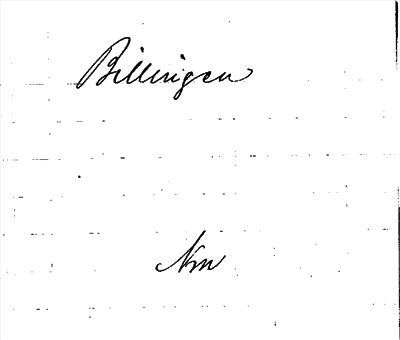 Billingen
Nm